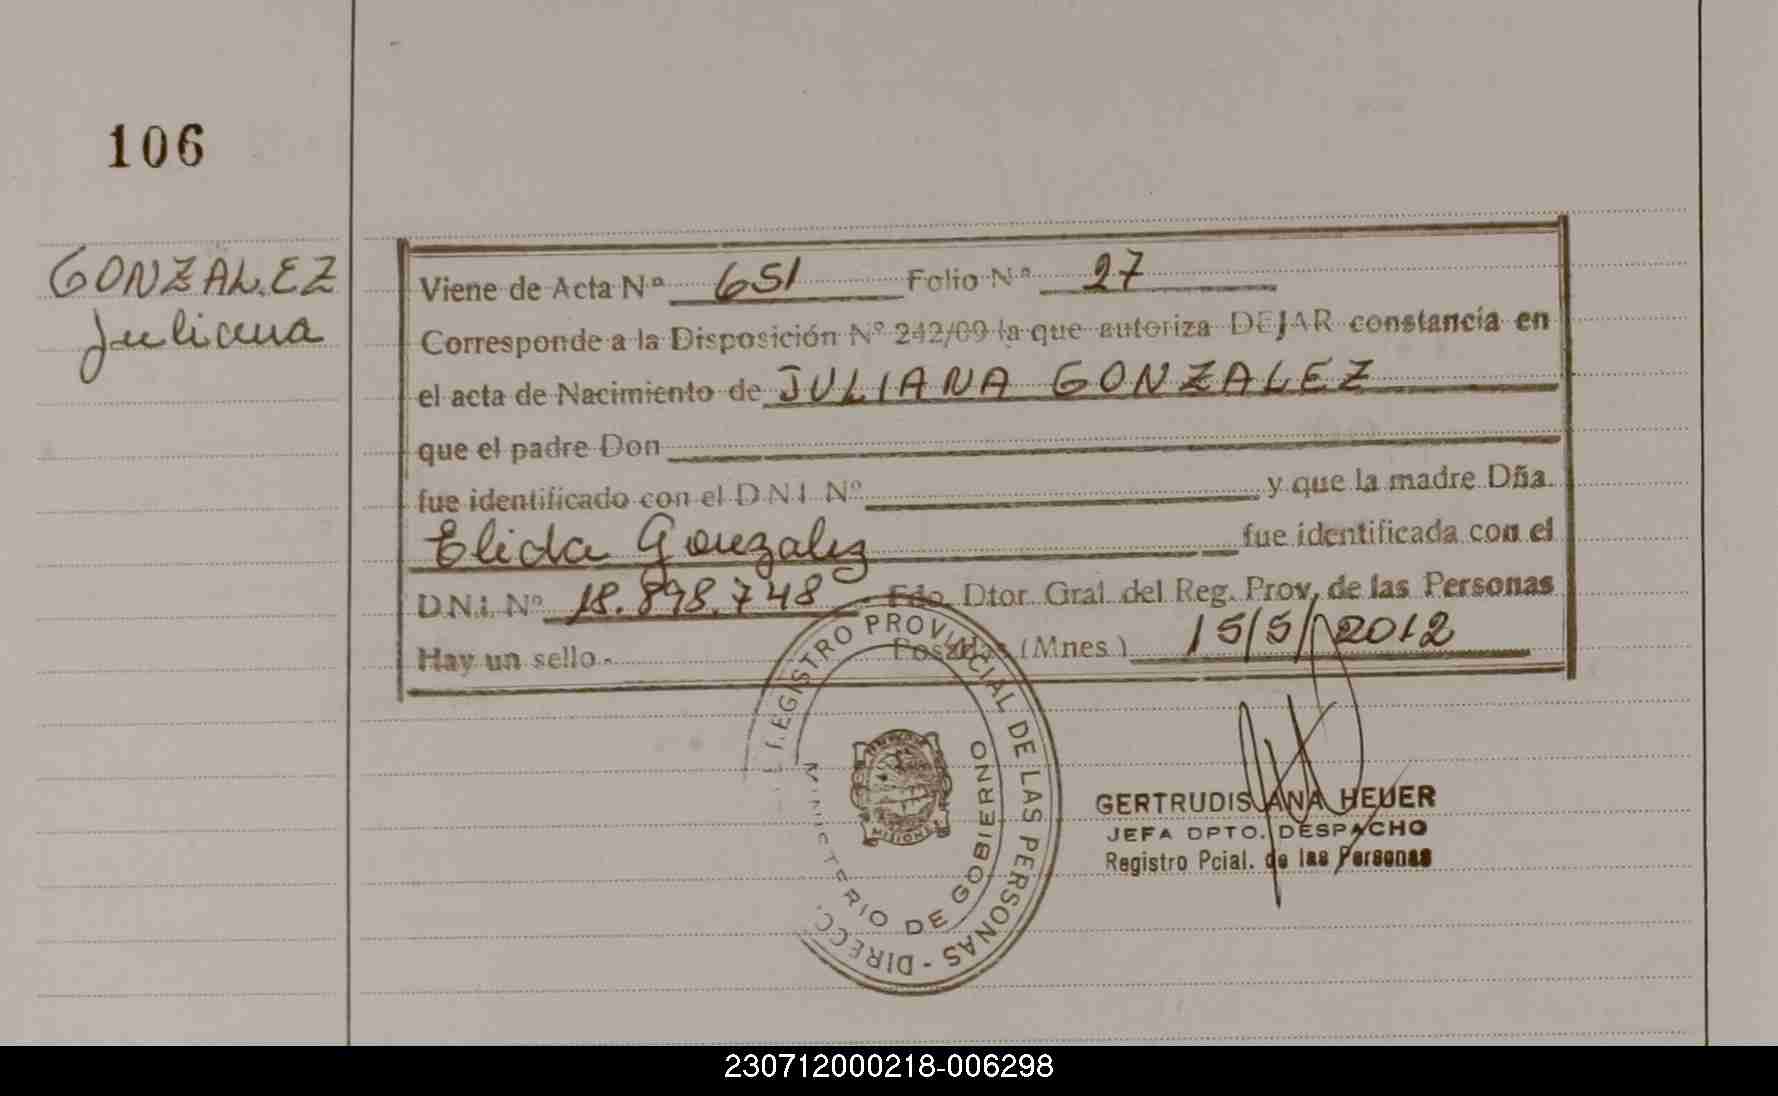 106
GONZALEZ
Juliana
Viene de Acta Nº 651 Folio Nº 27
Corresponde a la Disposición Nº 242/09 la que autoriza DEJAR constancia en
el acta de Nacimiento de JULIANA GONZALEZ
que el padre Don
fue identificado con el D.N.I. Nº y que la madre Dña.
Elida Gonzalez fue identificada con el
D.N.I. Nº 18.898.748 Fdo Dtor. Gral. del Reg. Prov. de las Personas
Hay un sello.- Posadas (Mnes.) 15/5/2012
REGISTRO PROVINCIAL DE LAS PERSONAS - DIRECC.
MINISTERIO DE GOBIERNO
MISIONES
GERTRUDIS ANA HEUER
JEFA DPTO. DESPACHO
Registro Pcial. de las Personas
230712000218-006298